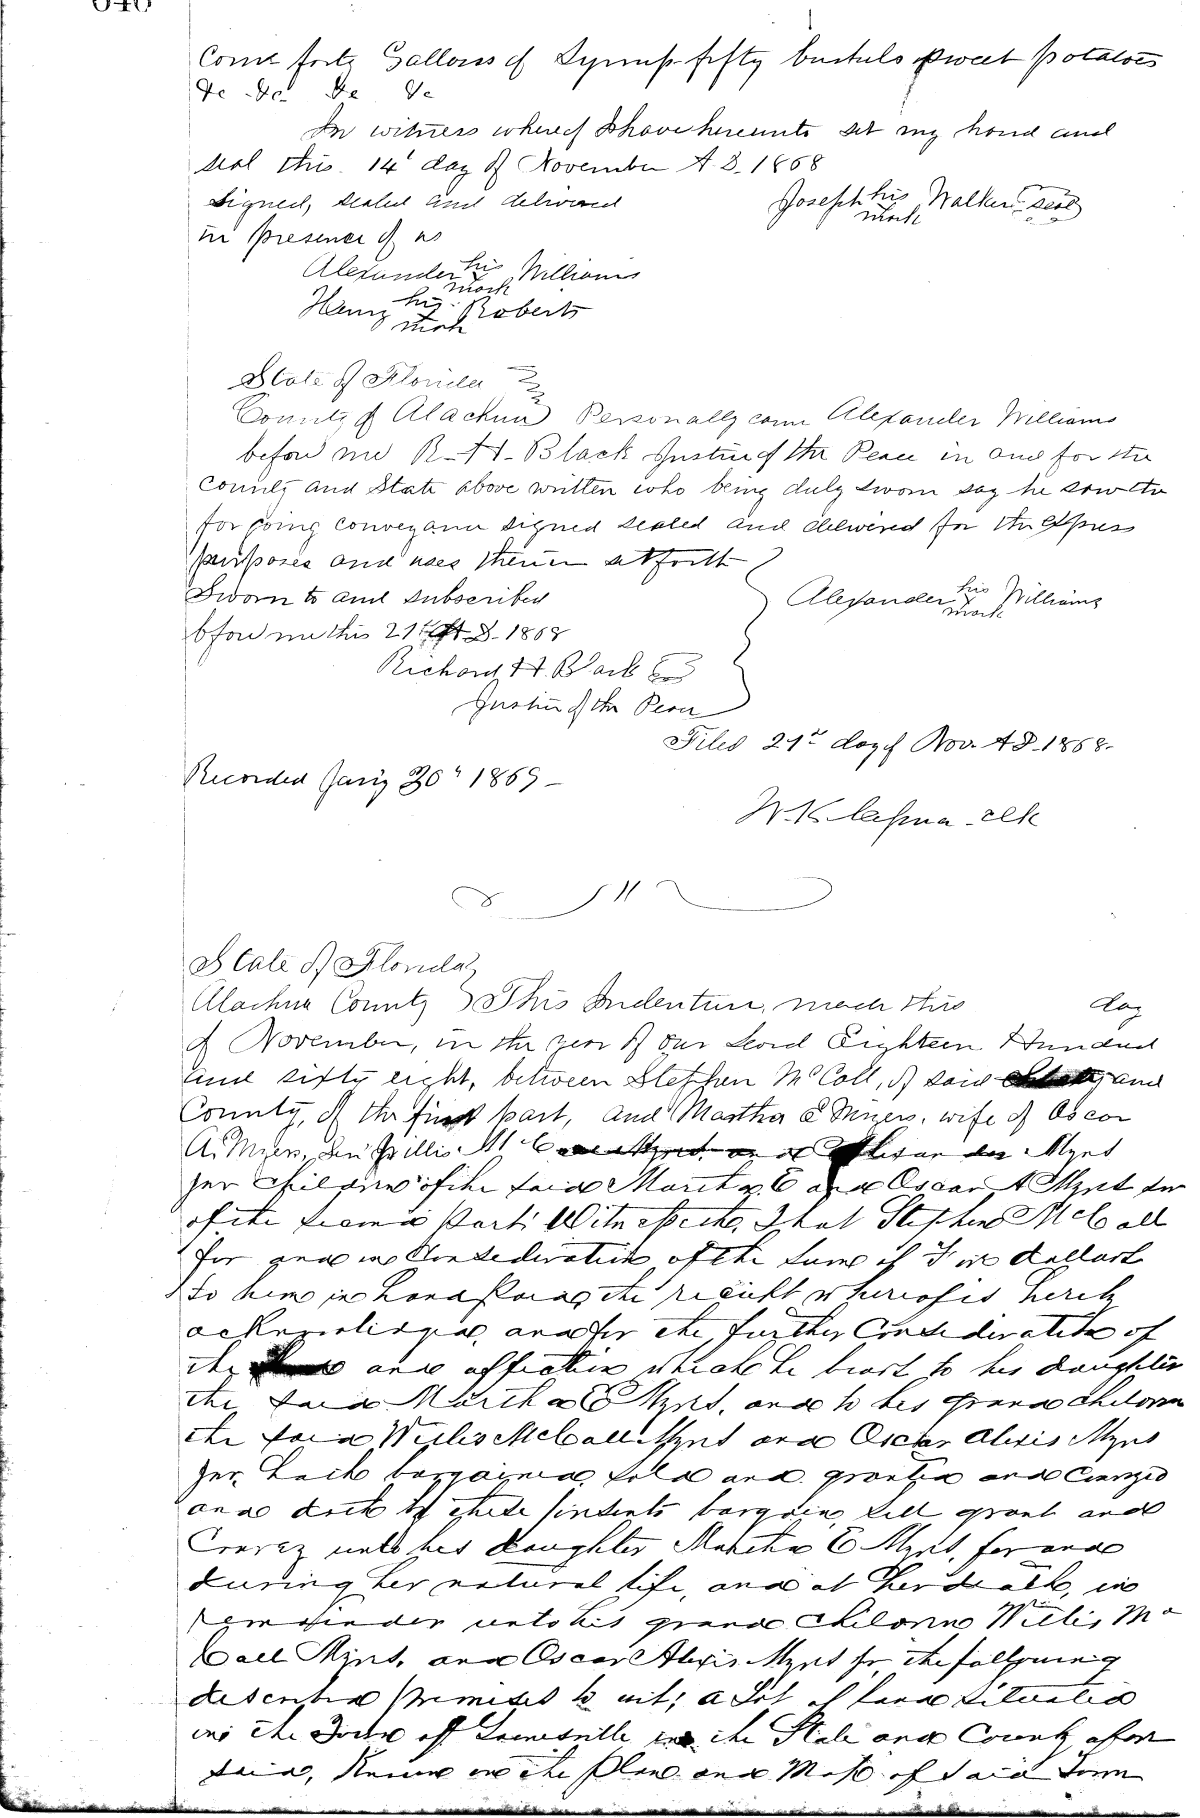 Corn forty Gallons of Syrup fifty bushels sweet potatoes
&c &c &c &c
In witness whereof I have hereunto set my hand and
seal this 14' day of November A D. 1868
Signed, sealed and delivered
Joseph his X mark Walker seal
in presence of us
Alexander his X mark Williams
Henry his X mark Roberts
State of Florida
County of Alachua Personally came Alexander Williams
before me R. H. Black Justice of the Peace in and for the
County and State above written who being duly sworn say he saw the
forgoing conveyance signed sealed and delivered for the express
purposes and uses therein set forth
Sworn to and subscribed
Alexander his X mark Williams
bfore me this 21st A D. 1868
Richard H. Black
Justice of the Peace
Filed 21st day of Nov. A D. 1868.
Recorded Jany 30th 1869
W. K. Cessna clk
State of Florida
Alachua County This Indenture, made this day
of November, in the year of our Lord Eighteen Hundred
and sixty eight, between Stephen McCall, of said and
County, of the first part, and Martha E Myers, wife of Oscar
A. Myers, Willis Mc Myers
jnr children of the said Martha E and Oscar A Myers
of the second part. Witnesseth, That Stephen McCall
for and in Consideration of the sum of Five dollars
to him in hand paid, the receipt whereof is hereby
acknowledged, and for the further Consideration of
the and affection which he bears to his daughter
the said Martha E Myers, and to his grand children
the said Willis McCall Myers and Oscar Alexis Myers
jnr. hath bargained, sold and granted and Conveyed
and doth by these presents bargain, sell grant and
Convey unto his daughter Martha E Myers, for and
during her natural life, and at her death, in
remainder unto his grand children Willis Mc
Call Myers, and Oscar Alexis Myers jr, the following
described premises to wit; a Lot of land situated
in the Town of Gainesville in the State and County afore
said, Known on the Plan and Map of said Town